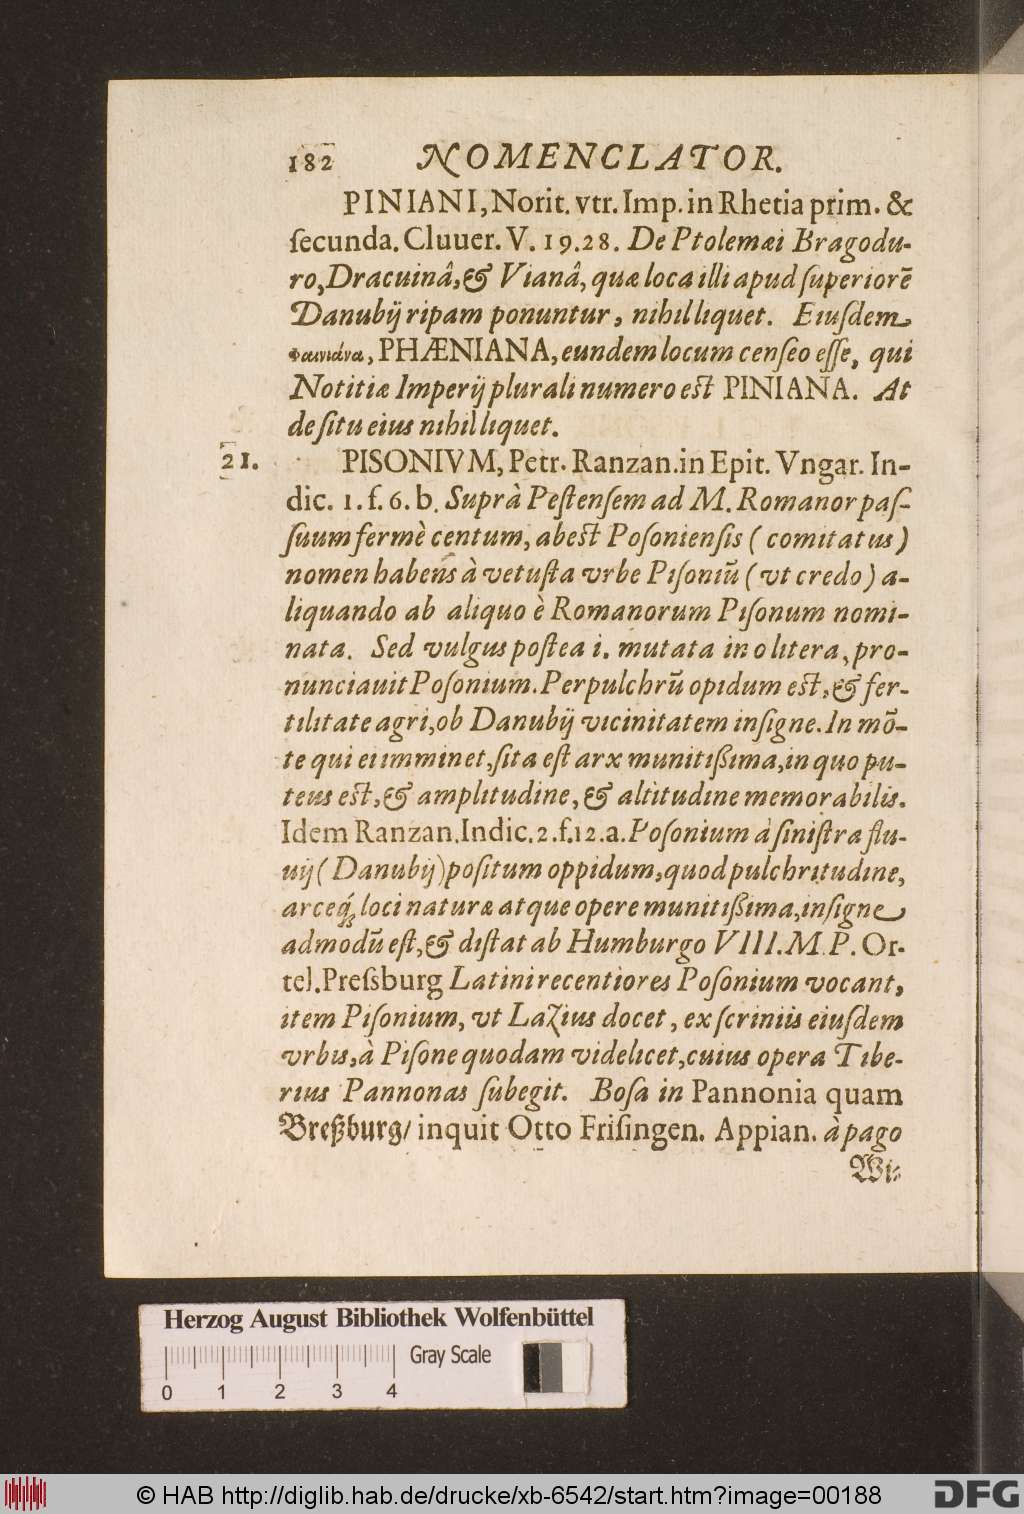 182 NOMENCLATOR.
PINIANI, Norit. vtr. Imp. in Rhetia prim. &
ſecunda. Cluuer. V. 19.28. De Ptolemæi Bragodu-
ro, Dracuinâ, & Vianâ, quæ loca illi apud ſuperiorẽ
Danubij ripam ponuntur, nihil liquet. Eiuſdem
Φαινιάνα, PHÆNIANA, eundem locum cenſeo eſſe, qui
Notitiæ Imperij plurali numero eſt PINIANA. At
de ſitu eius nihil liquet.
21. PISONIVM, Petr. Ranzan. in Epit. Vngar. In-
dic. 1. f. 6. b. Suprà Peſtenſem ad M. Romanor paſ-
ſuum fermè centum, abeſt Poſonienſis (comitatus)
nomen habens à vetuſta vrbe Piſoniũ (vt credo) a-
liquando ab aliquo è Romanorum Piſonum nomi-
nata. Sed vulgus poſtea i. mutata in o litera, pro-
nunciauit Poſonium. Perpulchrũ opidum eſt, & fer-
tilitate agri, ob Danubij vicinitatem inſigne. In mõ-
te qui ei imminet, ſita eſt arx munitißima, in quo pu-
teus eſt, & amplitudine, & altitudine memorabilis.
Idem Ranzan. Indic. 2. f. 12. a. Poſonium à ſiniſtra flu-
uij (Danubij) poſitum oppidum, quod pulchritudine,
arceq́ꝫ loci natura atque opere munitißima, inſigne
admodũ eſt, & diſtat ab Humburgo VIII. M. P. Or-
tel. Preſsburg Latini recentiores Poſonium vocant,
item Piſonium, vt Lazius docet, ex ſcriniis eiuſdem
vrbis, à Piſone quodam videlicet, cuius opera Tibe-
rius Pannonas ſubegit. Boſa in Pannonia quam
Breßburg/ inquit Otto Friſingen. Appian. à pago
Wi-
Herzog August Bibliothek Wolfenbüttel
Gray Scale
0 1 2 3 4
© HAB http://diglib.hab.de/drucke/xb-6542/start.htm?image=00188
DFG